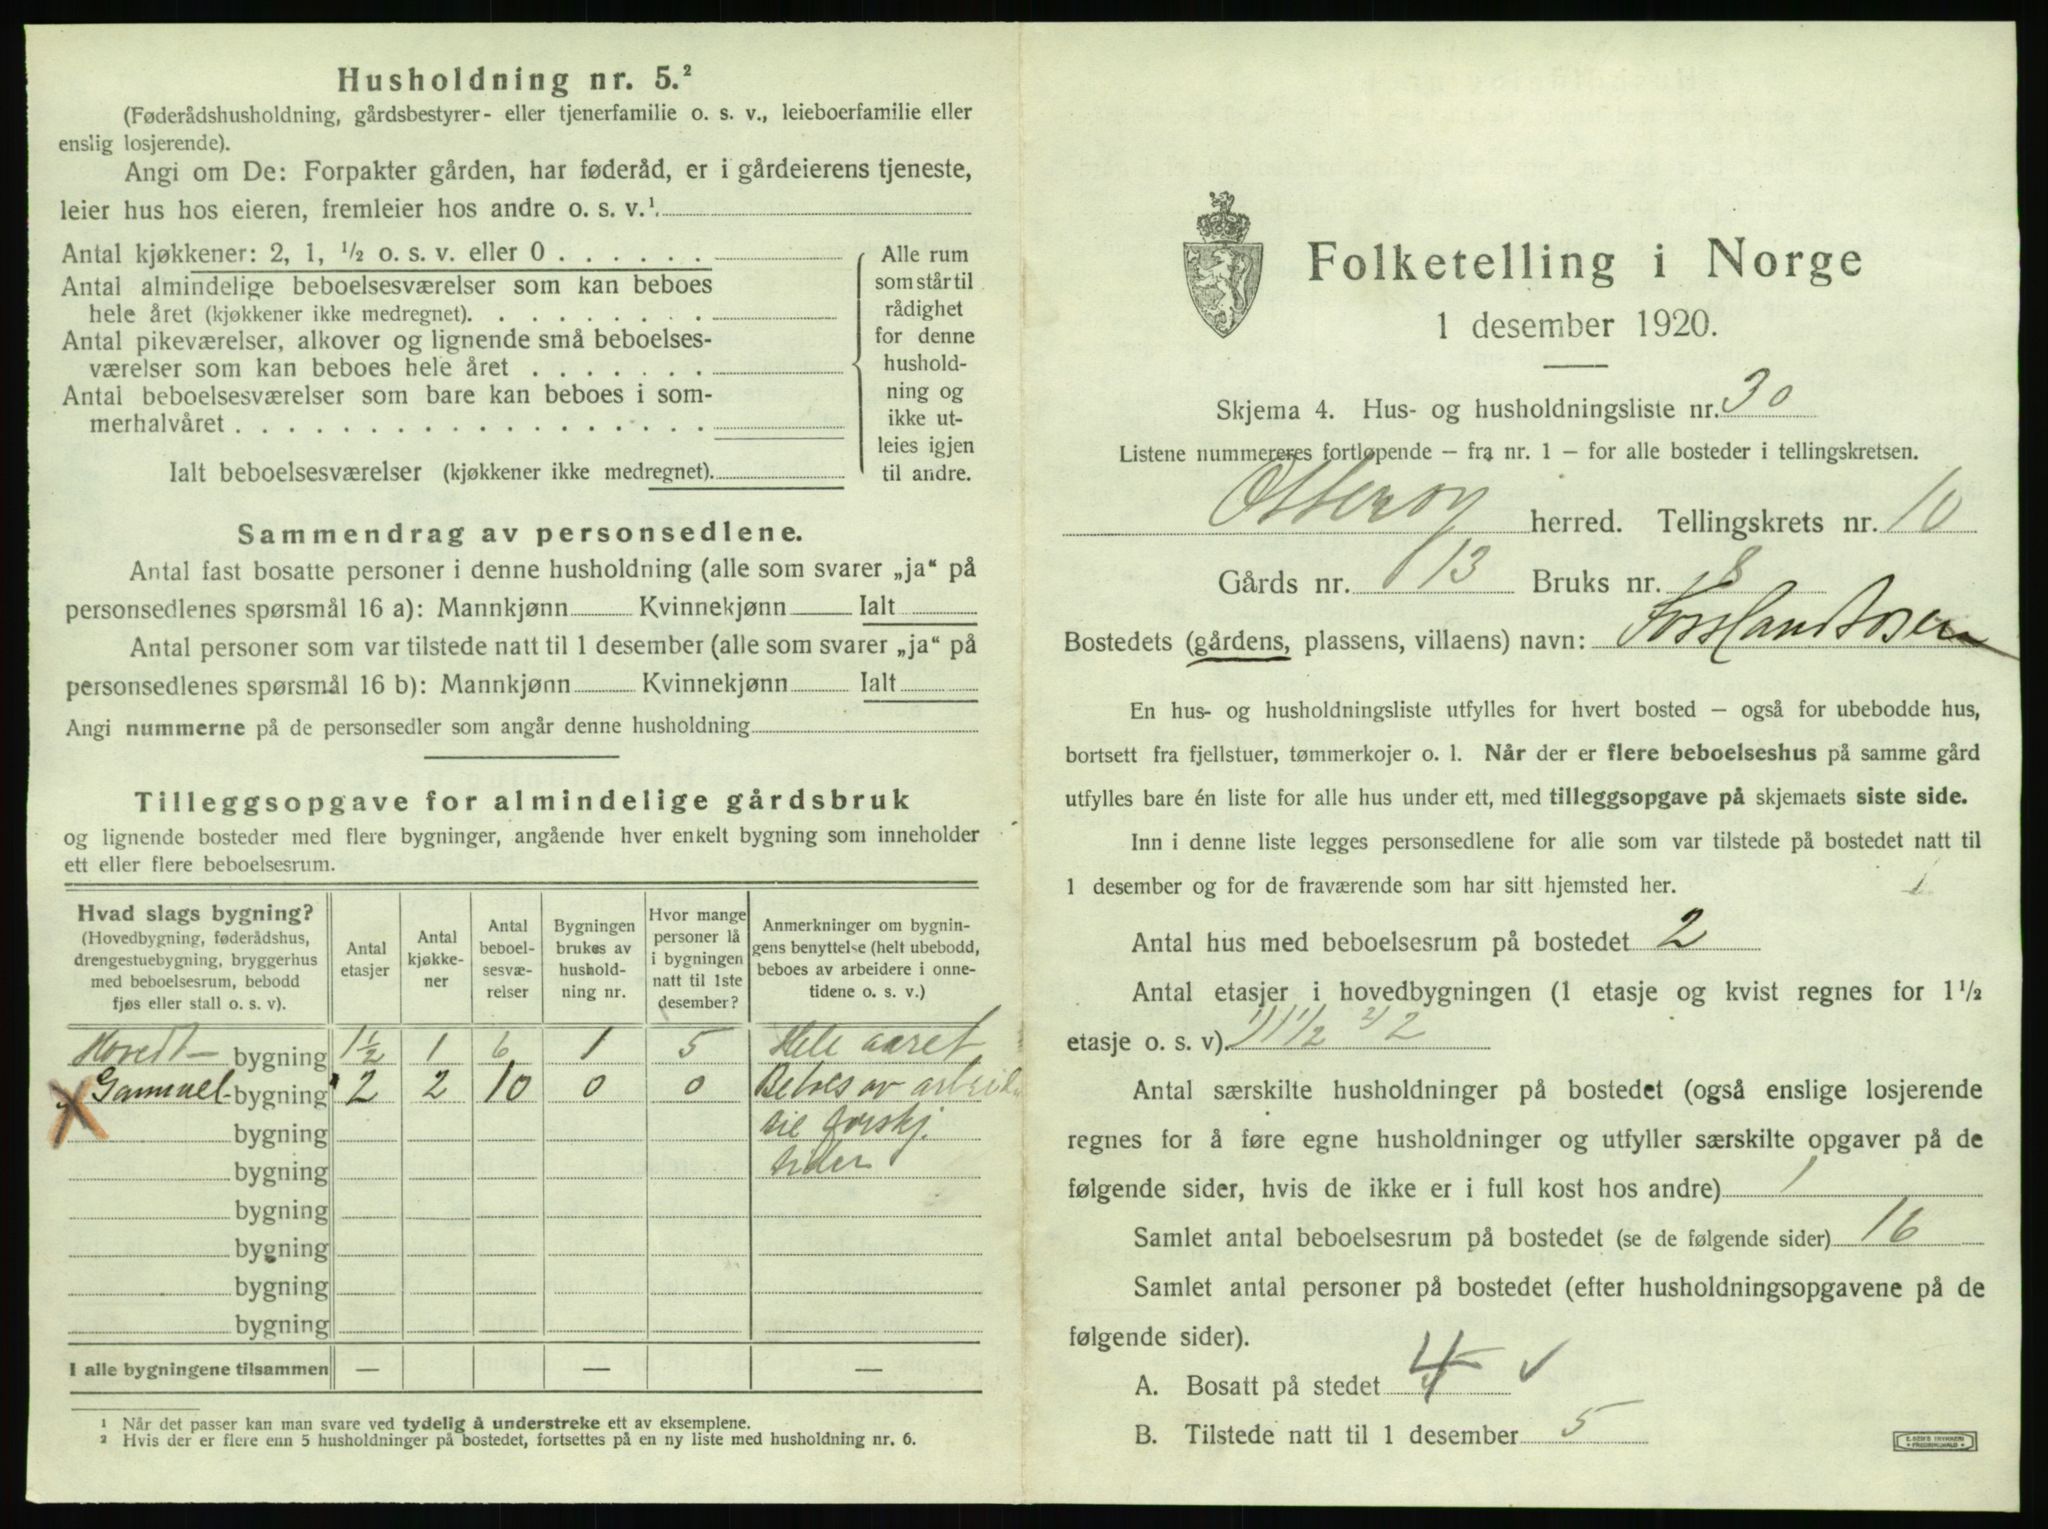 Husholdning nr. 5.²
(Føderådshusholdning, gårdsbestyrer- eller tjenerfamilie o. s. v., leieboerfamilie eller
enslig losjerende).
Angi om De: Forpakter gården, har føderåd, er i gårdeierens tjeneste,
leier hus hos eieren, fremleier hos andre o. s. v.¹.
Antal kjøkkener: 2, 1, ½ o. s. v. eller 0
Antal almindelige beboelsesværelser som kan beboes
hele året (kjøkkener ikke medregnet).
Antal pikeværelser, alkover og lignende små beboelses-
værelser som kan beboes hele året
Antal beboelsesværelser som bare kan beboes i som-
merhalvåret
Ialt beboelsesværelser (kjøkkener ikke medregnet).
Alle rum
som står til
rådighet
for denne
hushold-
ning og
ikke ut-
leies igjen
til andre.
Sammendrag av personsedlene.
Antal fast bosatte personer i denne husholdning (alle som svarer „ja“ på
personsedlenes spørsmål 16 a): Mannkjønn Kvinnekjønn Ialt
Antal personer som var tilstede natt til 1 desember (alle som svarer „ja“ på
personsedlenes spørsmål 16 b): Mannkjønn Kvinnekjønn Ialt
Angi nummerne på de personsedler som angår denne husholdning
Tilleggsopgave for almindelige gårdsbruk
og lignende bosteder med flere bygninger, angående hver enkelt bygning som inneholder
ett eller flere beboelsesrum.
Hvad slags bygning?
(Hovedbygning, føderådshus,
drengestuebygning, bryggerhus
med beboelsesrum, bebodd
fjøs eller stall o. s. v).
Antal
etasjer
Antal
kjøkke-
ner
Antal
beboel-
sesvæ-
relser
Bygningen
brukes av
hushold-
ning nr.
Hvor mange
personer lå
i bygningen
natt til 1ste
desember?
Anmerkninger om bygnin-
gens benyttelse (helt ubebodd,
beboes av arbeidere i onne-
tidene o. s. v.)
Hovedt- bygning 1½ 1 6 1 5 Hele aaret
Gammel-bygning 2 2 10 0 0 Beboes av
bygning til forskj.
bygning tider
bygning
bygning
bygning
bygning
I alle bygningene tilsammen — — —
¹ Når det passer kan man svare ved tydelig å understreke ett av eksemplene.
² Hvis der er flere enn 5 husholdninger på bostedet, fortsettes på en ny liste med husholdning nr. 6.
Folketelling i Norge
1 desember 1920.
Skjema 4. Hus- og husholdningsliste nr. 30
Listene nummereres fortløpende – fra nr. 1 – for alle bosteder i tellingskretsen.
Otterøy herred. Tellingskrets nr. 10
Gårds nr. 13 Bruks nr. 8
Bostedets (gårdens, plassens, villaens) navn: Fosslandsosen
En hus- og husholdningsliste utfylles for hvert bosted – også for ubebodde hus,
bortsett fra fjellstuer, tømmerkojer o. l. Når der er flere beboelseshus på samme gård
utfylles bare én liste for alle hus under ett, med tilleggsopgave på skjemaets siste side.
Inn i denne liste legges personsedlene for alle som var tilstede på bostedet natt til
1 desember og for de fraværende som har sitt hjemsted her. 1
Antal hus med beboelsesrum på bostedet 2
Antal etasjer i hovedbygningen (1 etasje og kvist regnes for 1½
etasje o. s. v). 1) 1½ 2) 2
Antal særskilte husholdninger på bostedet (også enslige losjerende
regnes for å føre egne husholdninger og utfyller særskilte opgaver på de
følgende sider, hvis de ikke er i full kost hos andre) 1
Samlet antal beboelsesrum på bostedet (se de følgende sider) 16
Samlet antal personer på bostedet (efter husholdningsopgavene på de
følgende sider).
A. Bosatt på stedet 4 ✓
B. Tilstede natt til 1 desember 5